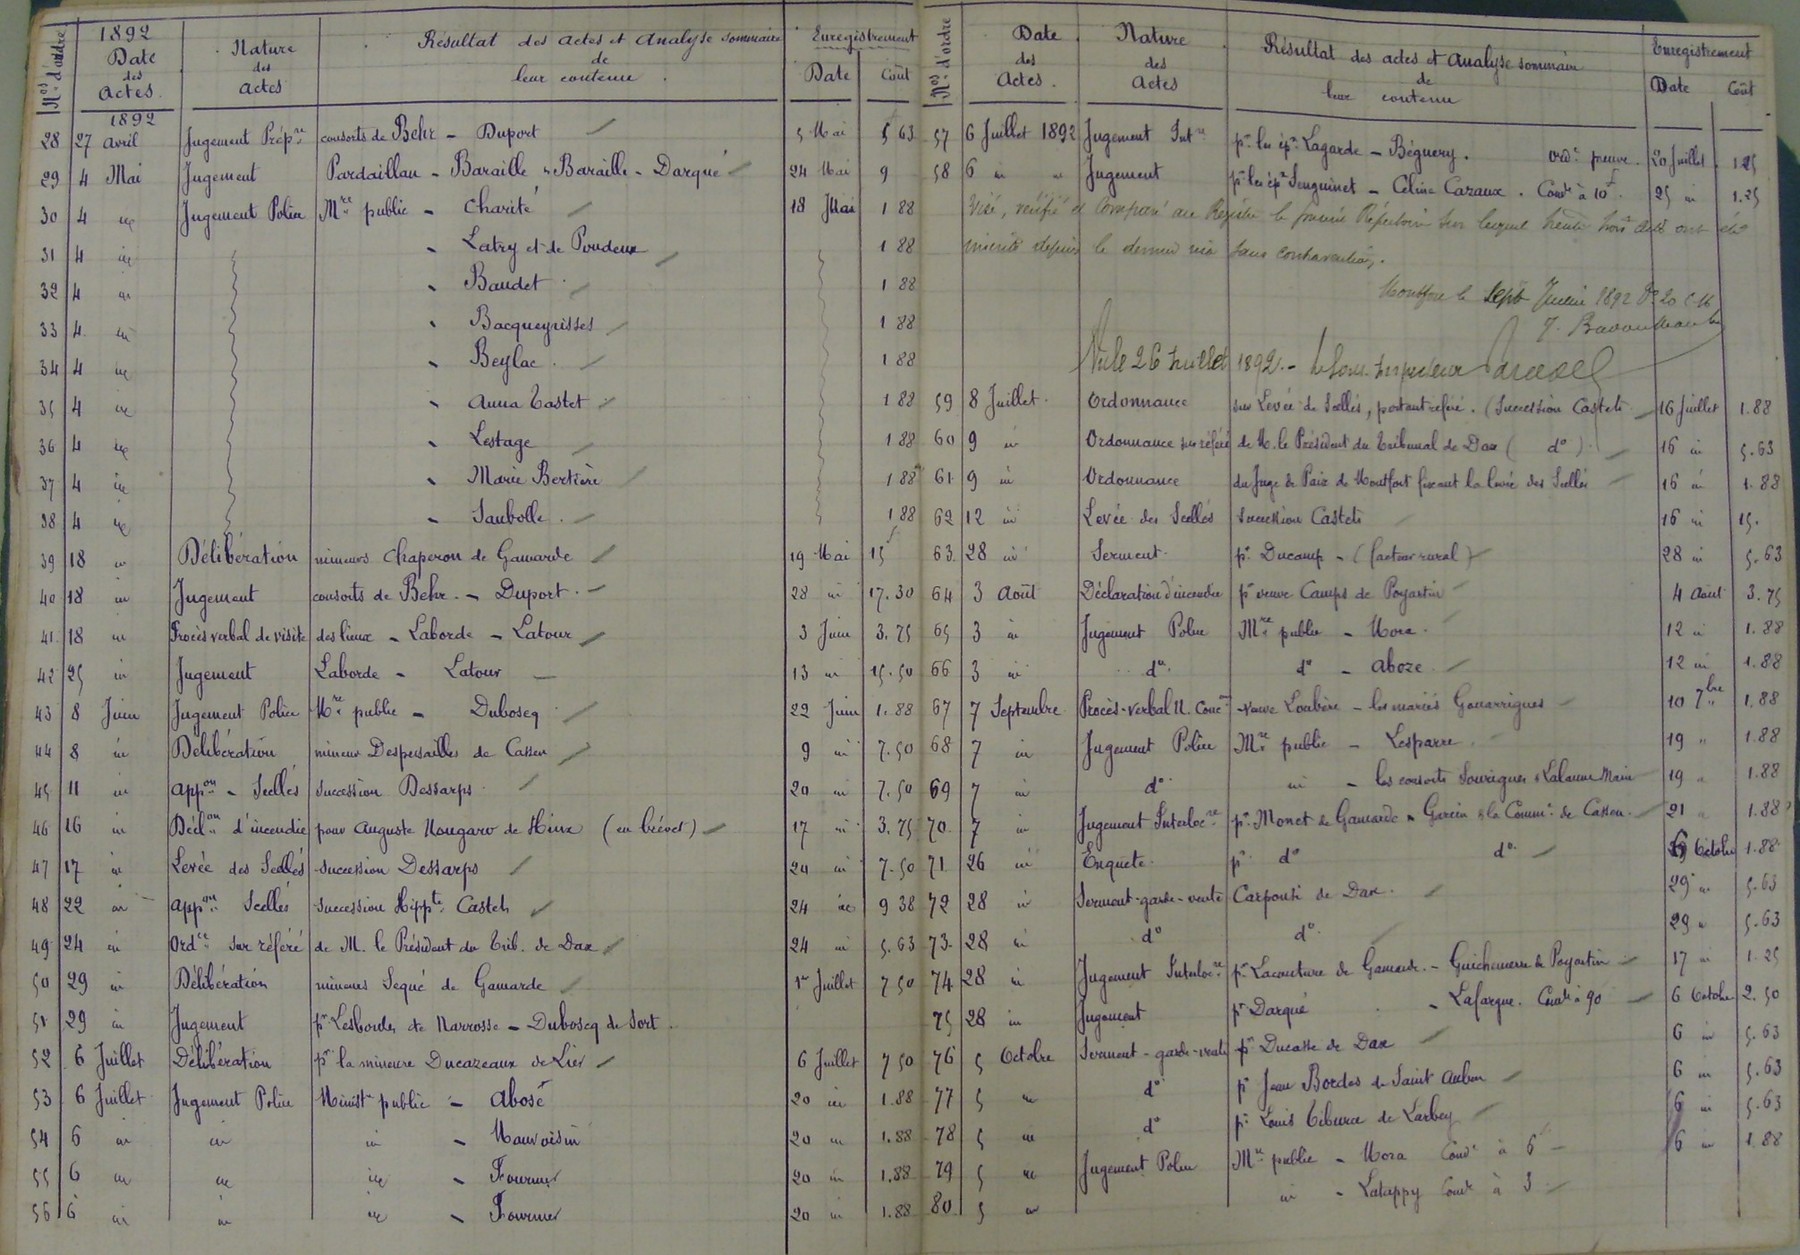 Nos d'ordre | 1892 Date des Actes | Nature des Actes | Résultat des Actes et Analyse sommaire de leur contenu | Enregistrement Date | Coût
1892
28 | 27 avril | Jugement Prépre | consorts de Behr - Duport | 5 Mai | 5 63
29 | 4 Mai | Jugement | Pardaillan - Baraille & Baraille - Darqué | 24 Mai | 9
30 | 4 in | Jugement Police | Mre public - Charité | 18 Mai | 1 88
31 | 4 in | - Latry et de Poudenx | 1 88
32 | 4 in | - Baudet | 1 88
33 | 4 in | - Bacqueyrisses | 1 88
34 | 4 in | - Beylac | 1 88
35 | 4 in | - Anna Castet | 1 88
36 | 4 in | - Lestage | 1 88
37 | 4 in | - Marie Bertière | 1 88
38 | 4 in | - Saubolle | 1 88
39 | 18 in | Délibération | mineurs Chaperon de Gamarde | 19 Mai | 15
40 | 18 in | Jugement | consorts de Behr - Duport | 28 in | 17.30
41 | 18 in | Procès verbal de visite | des lieux - Laborde - Latour | 3 Juin | 3.75
42 | 25 in | Jugement | Laborde - Latour | 13 in | 15.50
43 | 8 Juin | Jugement Police | Mre public - Duboscq | 22 Juin | 1.88
44 | 8 in | Délibération | mineur Despessailles de Cassen | 9 in | 7.50
45 | 11 in | Appon - Scellés | succession Dessarps | 20 in | 7.50
46 | 16 in | Déclon d'incendie | pour Auguste Nougaro de Hinx (en brévet) | 17 in | 3.75
47 | 17 in | Levée des Scellés | succession Dessarps | 20 in | 7.50
48 | 22 in | Appon Scellés | succession Hippte Castets | 24 in | 9 38
49 | 24 in | Ordce sur référé | de M. le Président du Trib. de Dax | 24 in | 5.63
50 | 29 in | Délibération | mineurs Sequé de Gamarde | 1er Juillet | 7 50
51 | 29 in | Jugement | pr Lesbordes de Narrosse - Duboscq de Sort
52 | 6 Juillet | Délibération | pr la mineure Ducazeaux de Lier | 6 Juillet | 7 50
53 | 6 Juillet | Jugement Police | Ministre public - Abosé | 20 in | 1.88
54 | 6 in | in | in - Mauvoisin | 20 in | 1.88
55 | 6 in | in | in - Fournier | 20 in | 1.88
56 | 6 in | in | in - Fournier | 20 in | 1.88
Nos d'ordre | Date des Actes | Nature des Actes | Résultat des actes et Analyse sommaire de leur contenu | Enregistrement Date | Coût
57 | 6 Juillet 1892 | Jugement Intre | pr les épx Lagarde - Béguery. ordt preuve | 20 Juillet | 1.25
58 | 6 in | Jugement | pr les épx Senguinet - Céline Cazaux. Condt à 10f | 25 in | 1.25
Visé, vérifié et comparé au Registre le présent Répertoire sur lequel trente trois actes ont été
inscrits depuis le dernier visa sans contravention.
Montfort le sept Juillet 1892
Vu le 26 Juillet 1892. - Le Sous-Inspecteur
59 | 8 Juillet | Ordonnance | sur Levée de Scellés, portant référé. (Succession Castets | 16 Juillet | 1.88
60 | 9 in | Ordonnance sur référé | de M. le Président du Tribunal de Dax ( do ) | 16 in | 5.63
61 | 9 in | Ordonnance | du Juge de Paix de Montfort fixant la levée des Scellés | 16 in | 1.88
62 | 12 in | Levée des Scellés | succession Castets | 16 in | 15.
63 | 28 in | Serment | pr Ducamp - (facteur rural) | 28 in | 5.63
64 | 3 Août | Déclaration d'incendie | pr veuve Camps de Poyartin | 4 Août | 3.75
65 | 3 in | Jugement Police | Mre public - Mora | 12 in | 1.88
66 | 3 in | do | do - Aboze | 12 in | 1.88
67 | 7 Septembre | Procès-verbal N. Concon | veuve Loubère - les mariés Gouarrigues | 10 7bre | 1.88
68 | 7 in | Jugement Police | Mre public - Lesparre | 19 " | 1.88
69 | 7 in | do | in - les consorts Sourigues & Lalanne Marie | 19 " | 1.88
70 | 7 in | Jugement Interlocre | pr Monet de Gamarde - Garein & la Commne de Cassen | 21 " | 1.88
71 | 26 in | Enquête | pr do do | 6 Octobre | 1.88
72 | 28 in | Serment-garde-vente | Carpouti de Dax | 29 in | 5.63
73 | 28 in | do | do | 29 " | 5.63
74 | 28 in | Jugement Interlocre | pr Lacouture de Gamarde - Guichemerre de Poyartin | 17 in | 1.25
75 | 28 in | Jugement | pr Darqué - Lafargue. Condt à 90 | 6 Octobre | 2.50
76 | 5 Octobre | Serment-garde-vente | pr Ducasse de Dax | 6 in | 5.63
77 | 5 in | do | pr Jean Bordes de Saint Aubin | 6 in | 5.63
78 | 5 in | do | pr Louis Tiburce de Larbey | 6 in | 5.63
79 | 5 in | Jugement Police | Mre public - Mora Condt à 6 | 6 in | 1.88
80 | 5 in | in - Latappy Condt à 3